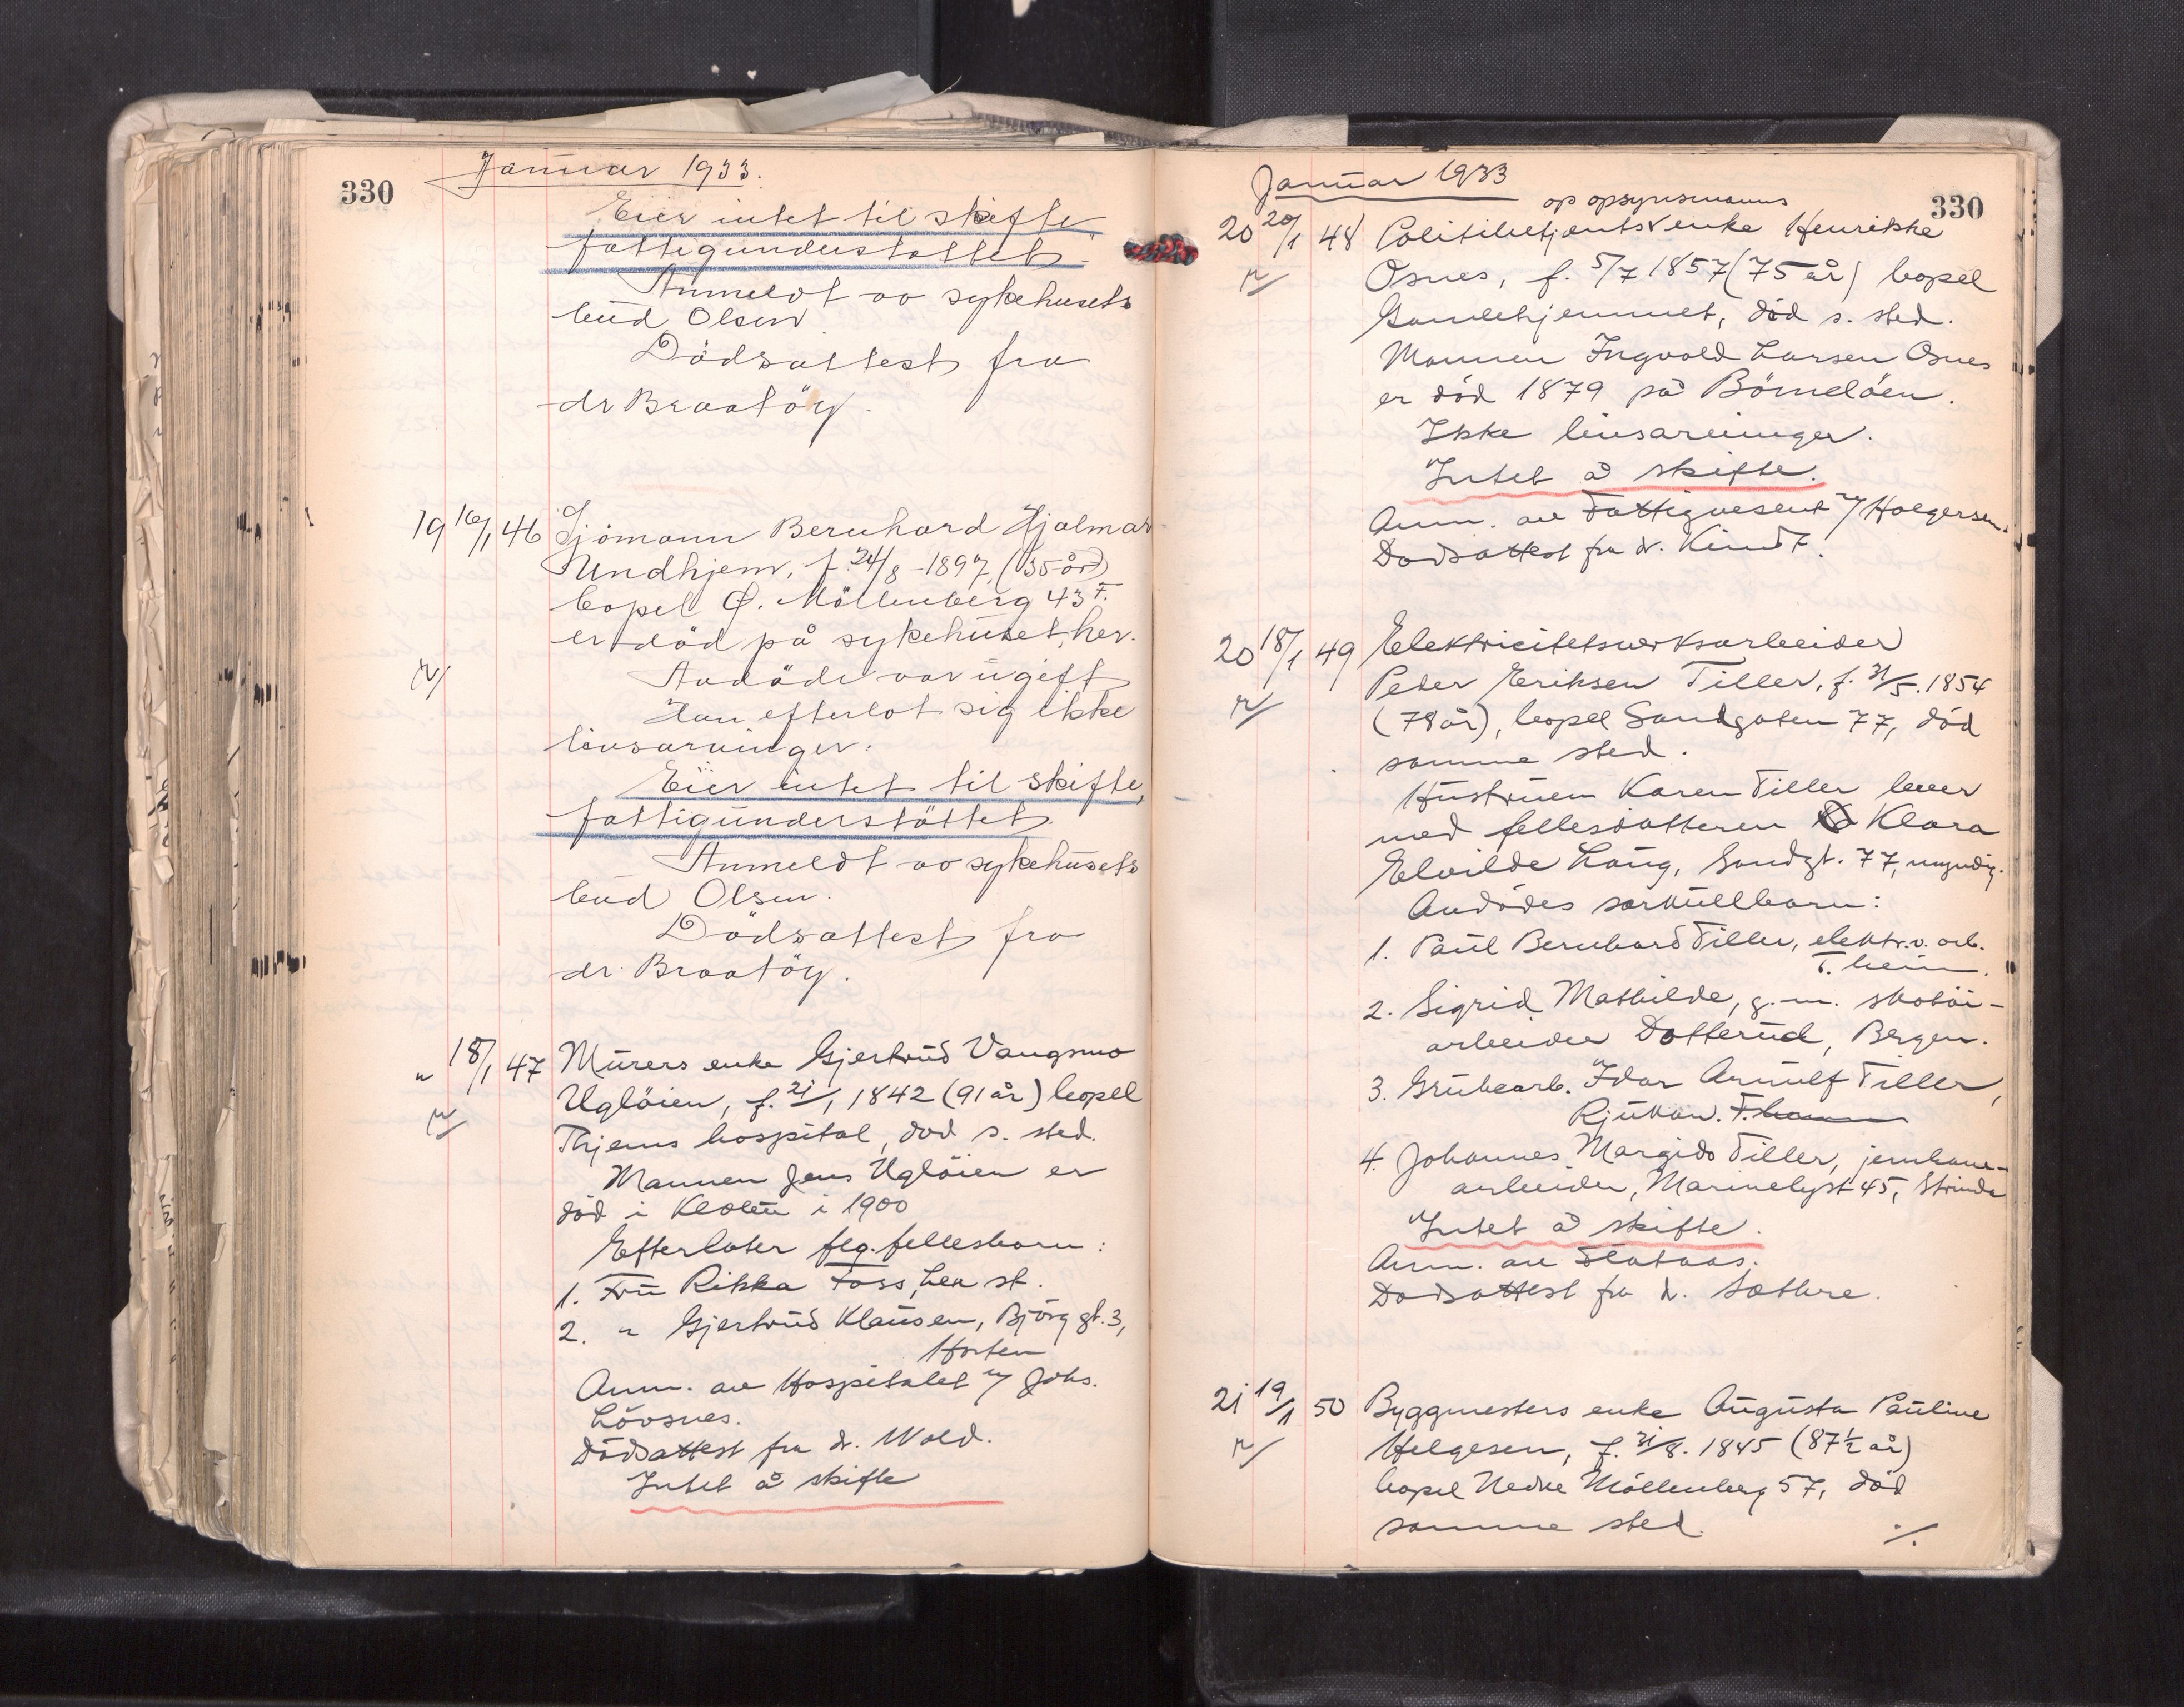 330
Januar 1933.
Eier intet til skifte
fattigunderstøttet.
Anmeldt av sykehusets
bud Olsen.
Dödsattest fra
dr Braatöy.
19 16/1 46 Sjömann Bernhard Hjalmar
Undhjem, f. 24/8 - 1897, (35 år)
bopel Ø. Möllenberg 43 I.
er död på sykehuset her.
Avdöde var ugift
Han efterlot sig ikke
livsarvinger.
Eier intet til skifte,
fattigunderstöttet.
Anmeldt av sykehusets
bud Olsen.
Dödsattest fra
dr. Braatöy.
" 18/1 47 Murers enke Gjertrud Vangsmo
Uglöien, f. 21/1 1842 (91 år) bopel
Thjems hospital, död s. sted.
Mannen Jens Uglöien er
död i Klæbu i 1900
Efterlater flg. fellesbarn:
1. Fru Rikka Foss, her st.
2. " Gjertrud Klausen, Björg gt. 3,
Horten
Anm. av Hospitalet v/ Johs.
Lövsnes.
Dödsattest fra dr. Wold.
Intet å skifte
Januar 1933
330
op opsynsmanns
20 20/1 48 Politibetjents enke Henrikke
Osnes, f. 5/7 1857 (75 år) bopel
Gamlehjemmet, död s. sted.
Mannen Ingvald Larsen Osnes
er död 1879 på Bömelöen.
Ikke livsarvinger.
Intet å skifte.
Anm. av Fattigvesenet v/ Holgersen.
Dödsattest fra dr. Kindt.
20 18/1 49 Elektricitetsverksarbeider
Peder Eriksen Tiller, f. 31/5. 1854
(78 år), bopel Sandgaten 77, död
samme sted.
Hustruen Karen Tiller lever
med fellesdatteren Klara
Elvilde Laug, Sandgt. 77, myndig.
Avdödes særkullbarn:
1. Paul Bernhard Tiller, elektr.v. arb.
T. heim.
2. Sigrid Mathilde, g. m. skotöi-
arbeider Dotterud, Bergen.
3. Grubearb. Idar Arnulf Tiller,
Rjukan.
4. Johannes Margido Tiller, jernbane-
arbeider, Marinelyst 45, Strinda
Intet å skifte.
Anm. av Flataas.
Dödsattest fra dr. Sæthre.
21 19/1 50 Byggmesters enke Augusta Pauline
Helgesen, f. 31/8. 1845 (87 1/2 år)
bopel Nedre Möllenberg 57, död
samme sted. ./.